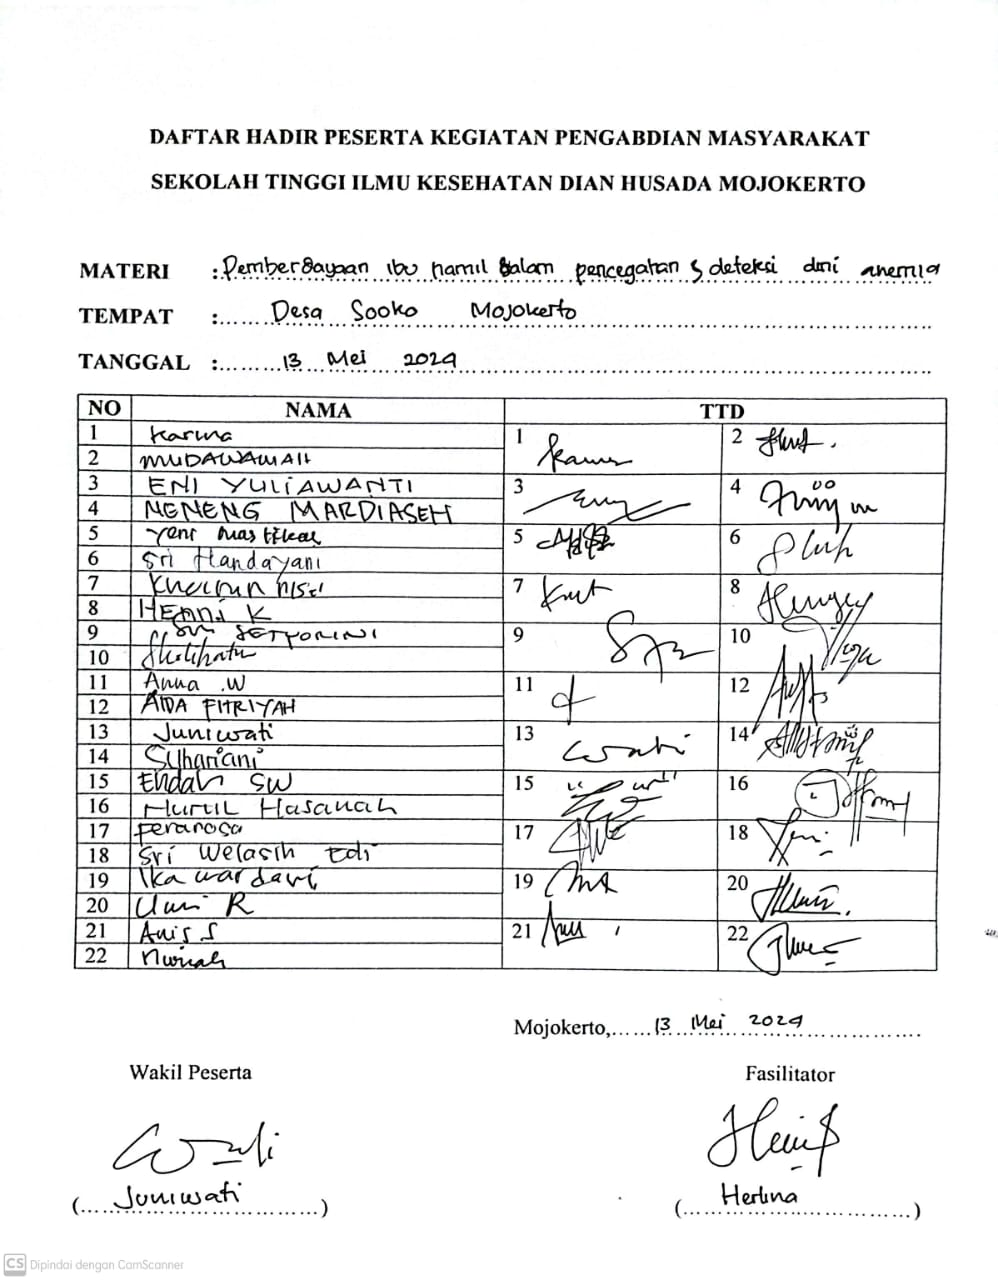 DAFTAR HADIR PESERTA KEGIATAN PENGABDIAN MASYARAKAT
SEKOLAH TINGGI ILMU KESEHATAN DIAN HUSADA MOJOKERTO
MATERI : Pemberdayaan ibu hamil dalam pencegahan & deteksi dini anemia
TEMPAT : Desa Sooko Mojokerto
TANGGAL : 13 Mei 2024
NO NAMA TTD
1 Karina 1 2
2 MUDAWAMAH
3 ENI YULIAWANTI 3 4
4 NENENG MARDIASEH
5 Yeni Mastikal 5 6
6 Sri Handayani
7 Khoirun nisa' 7 8
8 HENNI K
9 SETYORINI 9 10
10 Sholihatu
11 Anna .W 11 12
12 AIDA FITRIYAH
13 Juniwati 13 14
14 Suhariani
15 Endah SW 15 16
16 Nurul Hasanah
17 Feranosa 17 18
18 Sri Welasih Edi
19 Ika wardani 19 20
20 Umi R
21 Anis S 21 22
22 Nuriah
Mojokerto, 13 Mei 2024
Wakil Peserta Fasilitator
(Juniwati) (Herlina)
CS Dipindai dengan CamScanner